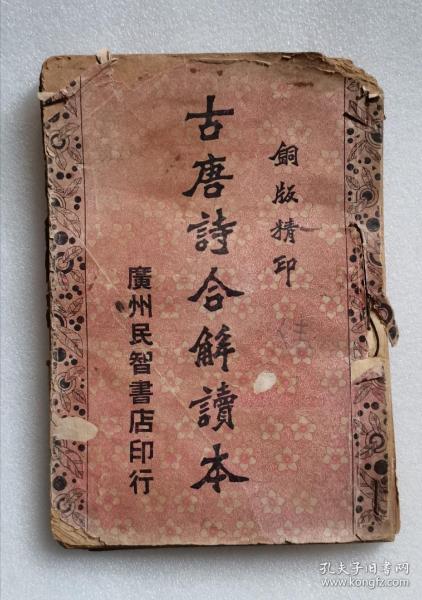 銅版精印
古唐詩合解讀本
廣州民智書店印行
孔夫子旧书网
www.kongfz.com